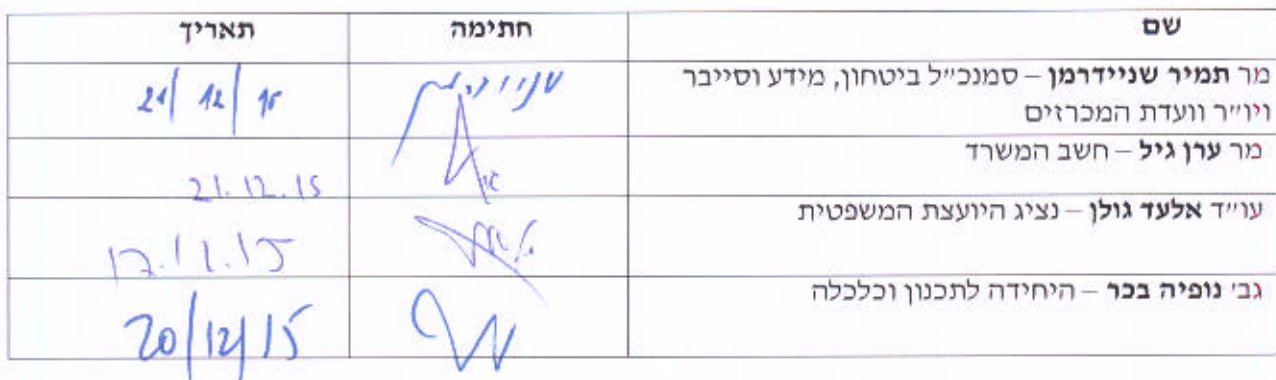 שם חתימה תאריך
מר תמיר שניידרמן – סמנכ״ל ביטחון, מידע וסייבר
ויו״ר וועדת המכרזים
21/12/15
מר ערן גיל – חשב המשרד
21.12.15
עו״ד אלעד גולן – נציג היועצת המשפטית
גב׳ נופיה בכר – היחידה לתכנון וכלכלה
20/12/15